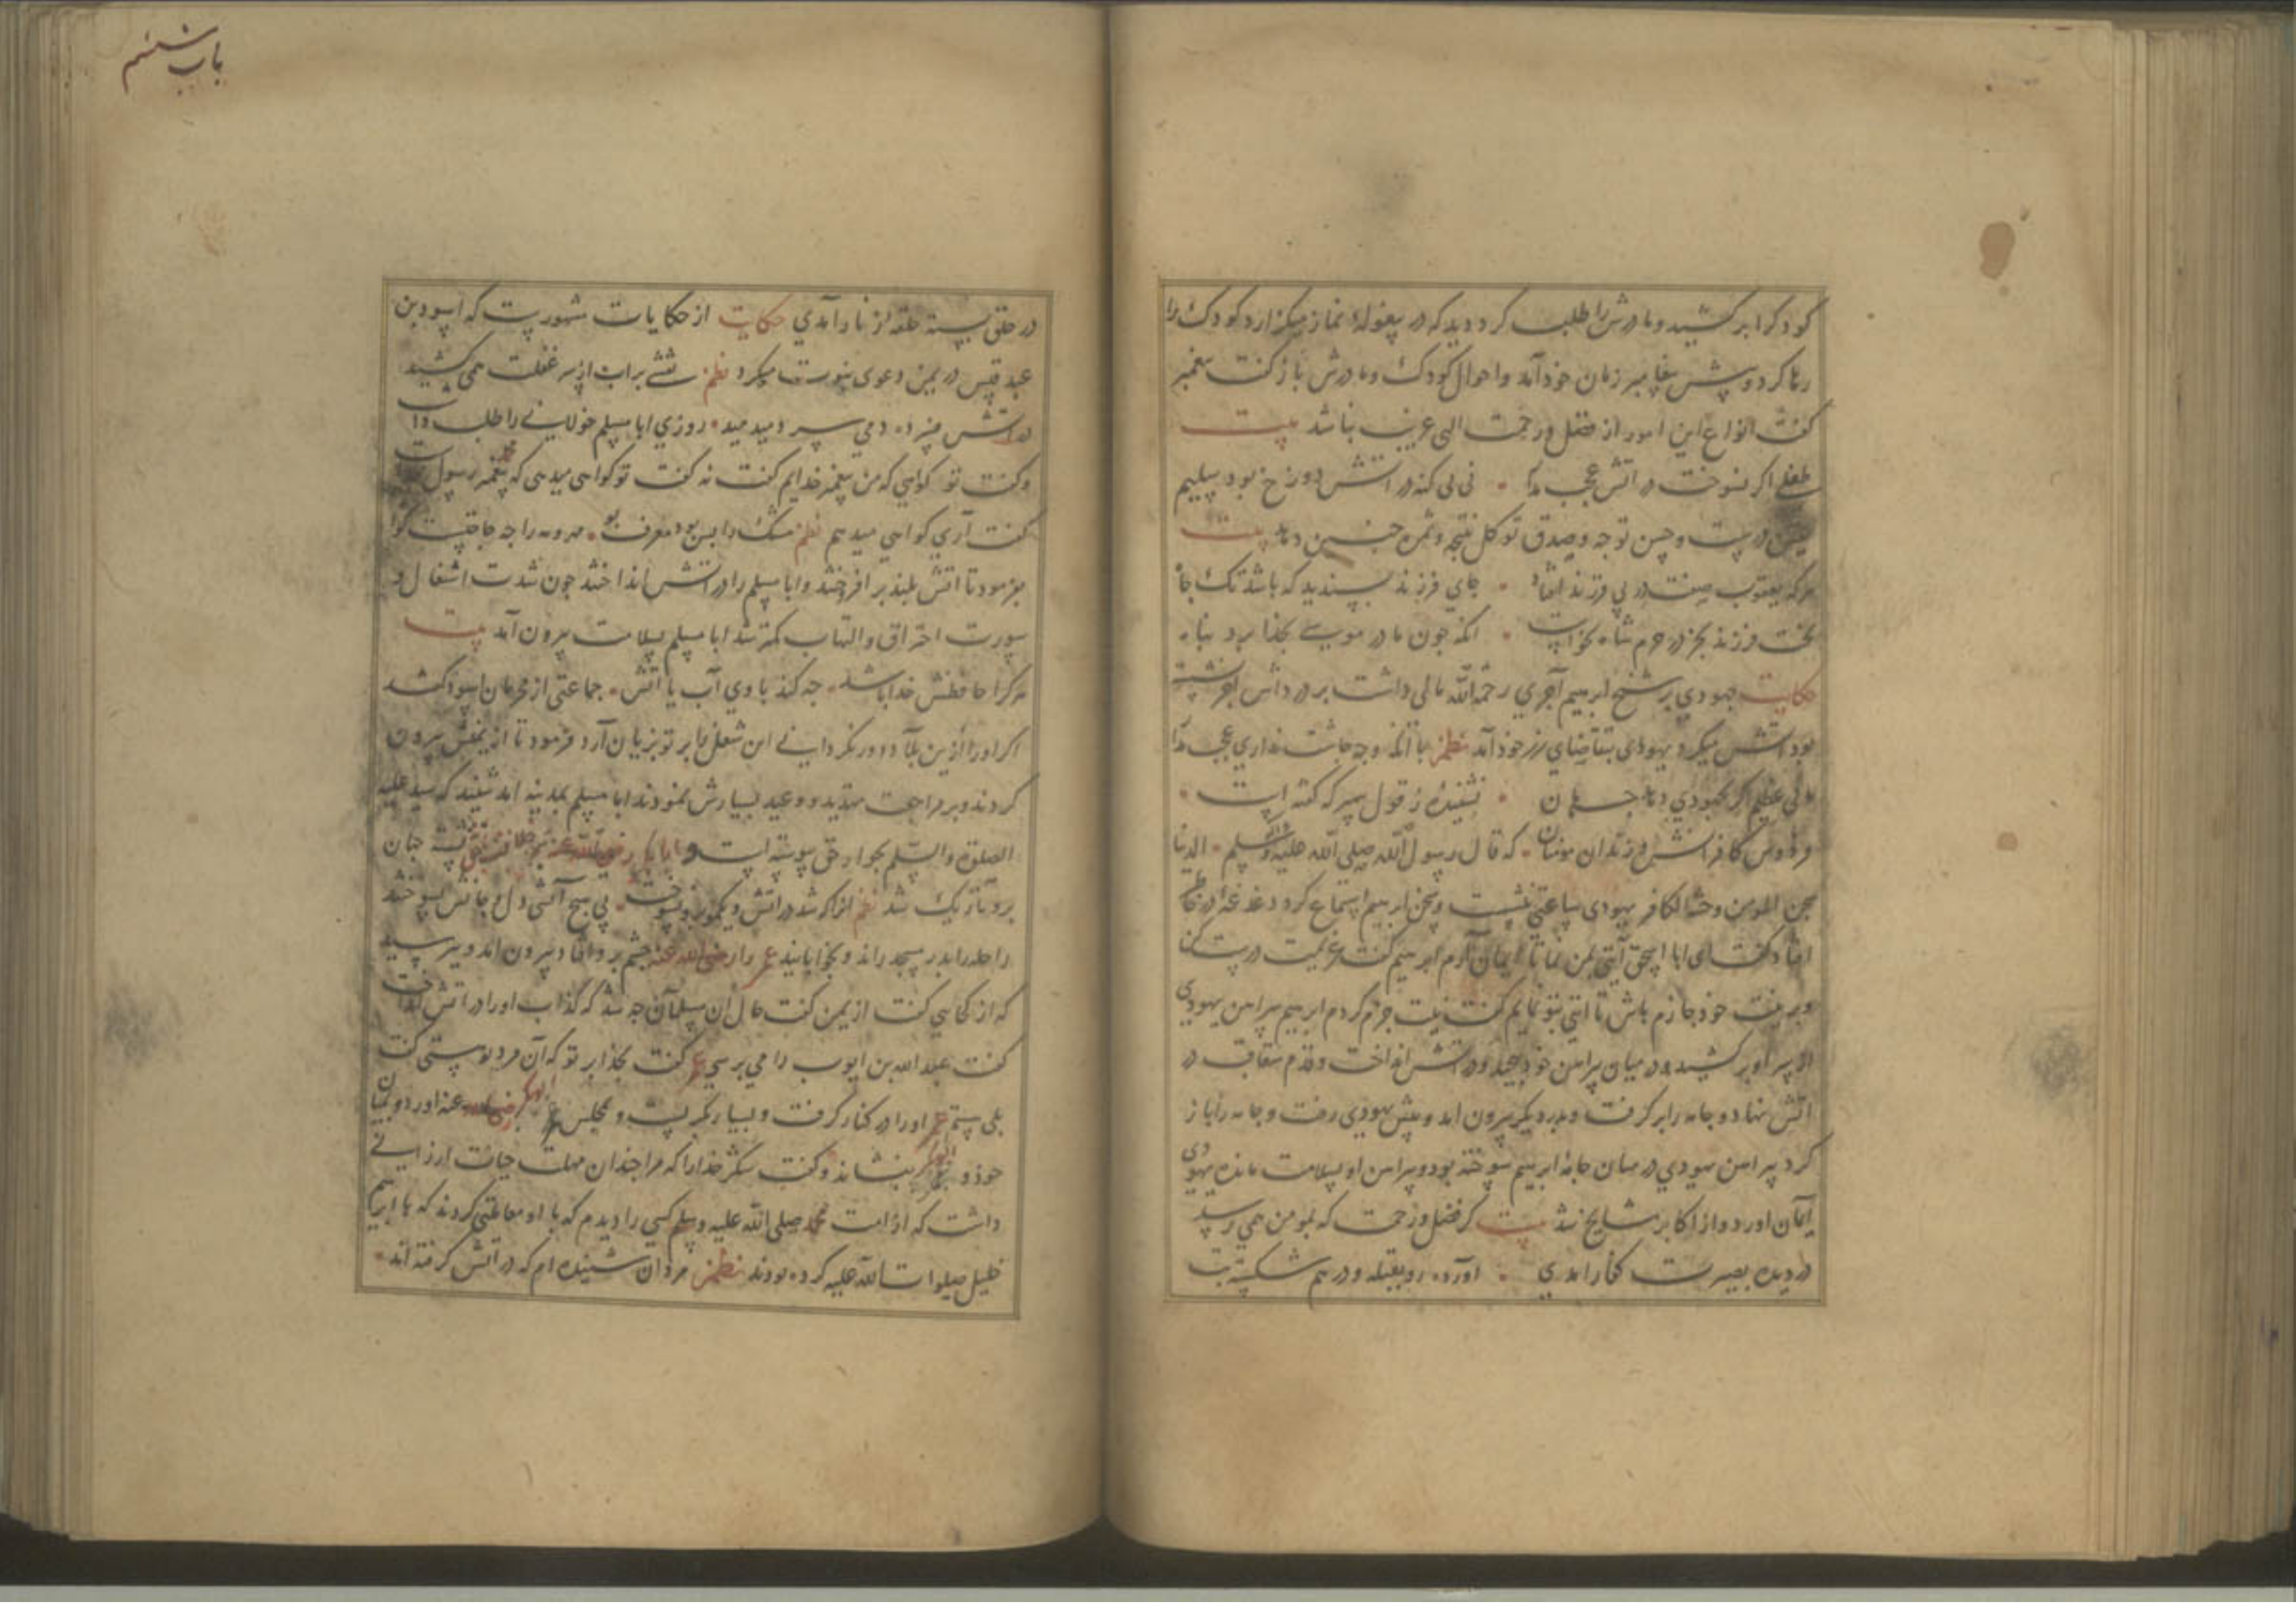 کودک را برکشید و مادرش را طلب کرد دید که در پیغوله نماز میگزارد کودک را
رها کرد و پیش پیغامبر زمان خود آمد و احوال کودک و مادرش باز گفت پیغمبر
گفت انواع این امور از فضل و رحمت الهی غریب نباشد بیت
طفلی اکر نسوخت در آتش عجب مدار • نی نی که در آتش دوزخ بود سلیم
یقین درست و حسن توجه و صدق توکل نتیجه و ثمره چنین دهد بیت
هرکه یعقوب صفت در پی فرزند افتاد • جای فرزند بسندید که باشد تک چاه
بخت فرزند بجز در حرم شاه نخواست • انکه چون مادر موسی بخدا برد پناه
حکایت جهودی بر شیخ ابرهیم آجری رحمه الله مالی داشت بر در داش آجر نشسته
بود آتش میکرد یهودی بتقاضای زر خود آمد نظم با آنکه وجه چاشت نداری عجب مدار
مالی عظیم اکر بجهودی دهد جهان • نشنیده ز قول پیمبر که گفته است •
فردوس کافرانش و زندان مومنان • که قال رسول الله صلی الله علیه و سلم • الدنیا
سجن المومن و جنة الکافر یهودی ساعتی بنشست و سخن ابرهیم استماع کرد دغدغه در خاطرش
افتاد گفت ای ابا اسحق آیتی بمن نما تا ایمان آرم ابرهیم گفت عزیمت درست کن
و بر نیت خود جازم باش تا آیتی بتو نمایم گفت نیت جزم کردم ابرهیم پیراهن یهودی
از سر او برکشید و در میان پیراهن خود پیچید و در آتش انداخت و قدم متعاقب در
آتش نهاد و جامه را برگرفت و بدر دیگر بیرون آمد و پیش یهودی رفت و جامه را باز
کرد پیراهن یهودی در میان جامه ابرهیم سوخته بود و پیراهن او بسلامت مانده یهودی
ایمان آورد و از اکابر مشایخ شد بیت کر فضل و رحمت که بمومن همی رسید
در دیده بصیرت کفار آمدی • آورده رو بقبله و درهم شکسته بت
باب ششم
در حلق بسته حلقه زنار وا آمدی حکایت از حکایات مشهور است که اسود بن
عبد قیس در یمن دعوی نبوت میکرد نظم نقشی بر آب از سر غفلت همی کشید
در آتش فسرده دمی سرد میدمید • روزی ابا مسلم خولانی را طلب داشت
و گفت تو گواهی که من پیغمبر خدایم گفت نه گفت تو گواهی میدهی که محمد پیغمبر رسول است
گفت آری گواهی میدهم نظم مشک را بس بود معرف بو • مهر و مه را چه حاجتست گواه
بفرمود تا آتش بلند برافرختند و ابا مسلم را در آتش انداختند چون شدت اشتعال و
سورت احتراق و التهاب کمتر شد ابا مسلم بسلامت بیرون آمد بیت
هر کرا حافظش خدا باشد • چه کند با وی آب یا آتش • جماعتی از محرمان اسود گفتند
اکر او را ازین بلاد دور نگردانی این شغل را بر تو بزیان آرد فرمود تا از یمنش بیرون
کردند و بر مراجعت تهدید و وعید بسیارش نمودند ابا مسلم بمدینه آمد شنید که سید علیه
الصلوة و السلم بجوار حق پیوسته است و ابابکر رضی الله عنه بخلافت نشسته جهان
برو تاریک شد نظم آنرا که شد در آتش و یکمو برو نسوخت • بی هیچ آتشی دل و جانش بسوختند
راحله را بدر مسجد راند و بخوابانید عمر را رضی الله عنه چشم برو افتاد بیرون آمد و پرسید
که از کجایی گفت از یمن گفت حال آن مسلمان چه شد که کذاب او را در آتش انداخت
گفت عبد الله بن ایوب را می پرسی عمر گفت بخدا بر تو که آن مرد تو هستی گفت
بلی هستم عمر او را در کنار گرفت و بسیار بگریست و بمجلس ابوبکر رضی الله عنه آورد و میان
خود و ابوبکر بنشاند و گفت شکر خدا را که مرا چندان مهلت حیات ارزانی
داشت که از امت محمد صلی الله علیه و سلم کسی را دیدم که با او معاملتی کردند که با ابرهیم
خلیل صلوات الله علیه کرده بودند نظم مردان شنیده ام که در آتش گرفته اند •